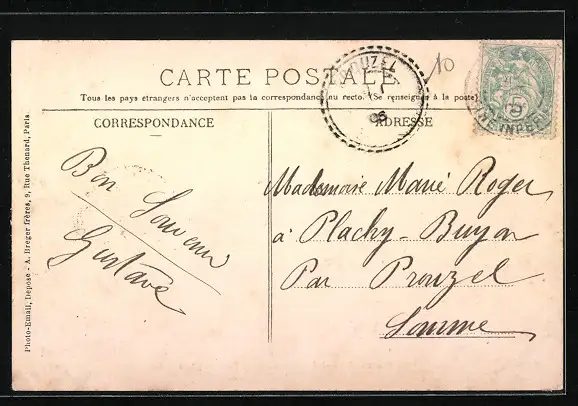 CARTE POSTALE
Tous les pays étrangers n'acceptent pas la correspondance au recto. (Se renseigner à la poste)
CORRESPONDANCE
ADRESSE
Photo-Email, Deposé - A. Breger frères, 9, Rue Thenard, Paris.
Bon Souvenir
Gustave
PROUZEL
06
10
5
Mademoise Marié Roger
à Plachy-Buyon
Par Prouzel
Somme